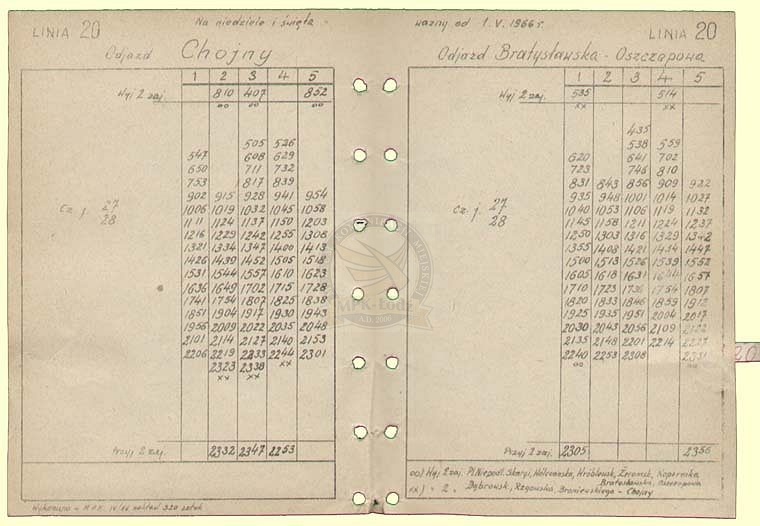 LINIA 20
Na niedziele i święta
Odjazd Chojny
1 2 3 4 5
Wyj z zaj. 810 407 852
oo oo oo
505 526
547 608 629
650 711 732
753 817 839
902 915 928 941 954
1006 1019 1032 1045 1058
1111 1124 1137 1150 1203
1216 1229 1242 1255 1308
1321 1334 1347 1400 1413
1426 1439 1452 1505 1518
1531 1544 1557 1610 1623
1636 1649 1702 1715 1728
1741 1754 1807 1825 1838
1851 1904 1917 1930 1943
1956 2009 2022 2035 2048
2101 2114 2127 2140 2153
2206 2219 2233 2244 2301
2323 2338 xx
xx xx
Cz. j. 27
28
Przyj z zaj. 2332 2347 2253
Wykonano - M.P.K. IV/66 nakład 320 sztuk
ważny od 1.V.1966 r.
LINIA 20
Odjazd Bratysławska - Oszczepowa
1 2 3 4 5
Wyj z zaj. 535 514
xx xx
435
538 559
620 641 702
723 746 810
831 843 856 909 922
935 948 1001 1014 1027
1040 1053 1106 1119 1132
1145 1158 1211 1224 1237
1250 1303 1316 1329 1342
1355 1408 1421 1434 1447
1500 1513 1526 1539 1552
1605 1618 1631 1644 1657
1710 1723 1736 1754 1807
1820 1833 1846 1859 1912
1925 1935 1951 2004 2017
2030 2043 2056 2109 2122
2135 2148 2201 2214 2227
2240 2253 2308 2331
oo oo
Cz. j. 27
28
Przyj z zaj. 2305 2356
oo) Wyj z zaj. Pl. Niepodl. Skargi, Wólczańska, Wróblewsk, Żeromsk, Kopernika
Bratysławska, Oszczepowa
xx) " z " Dąbrowsk, Rzgowska, Broniewskiego - Chojny
20
MPK-Łódź